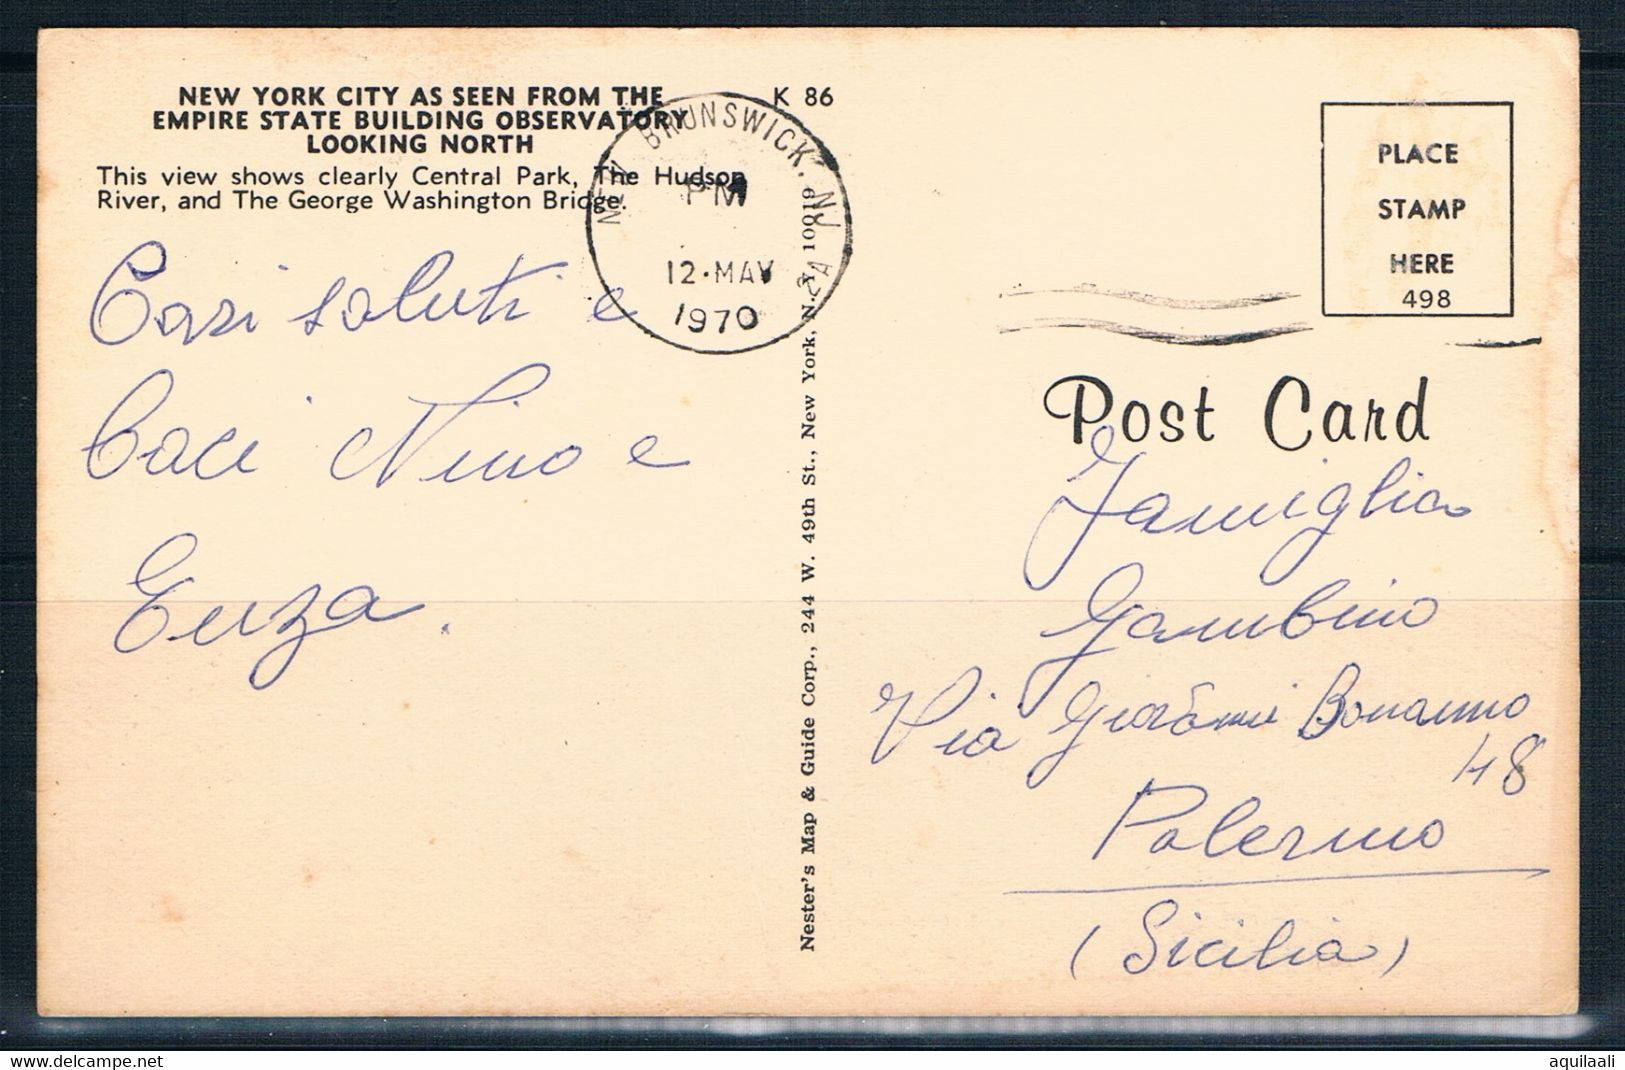 NEW YORK CITY AS SEEN FROM THE
EMPIRE STATE BUILDING OBSERVATORY
LOOKING NORTH
K 86
This view shows clearly Central Park, The Hudson
River, and The George Washington Bridge.
NEW BRUNSWICK, NJ
PM
12·MAY
1970
Cari saluti e
baci Nino e
Enza.
Nester's Map & Guide Corp., 244 W. 49th St., New York, N.Y. 10019
PLACE
STAMP
HERE
498
Post Card
Famiglia
Gambino
Via Giovanni Bonanno
48
Palermo
(Sicilia)
www.delcampe.net
aquilaali